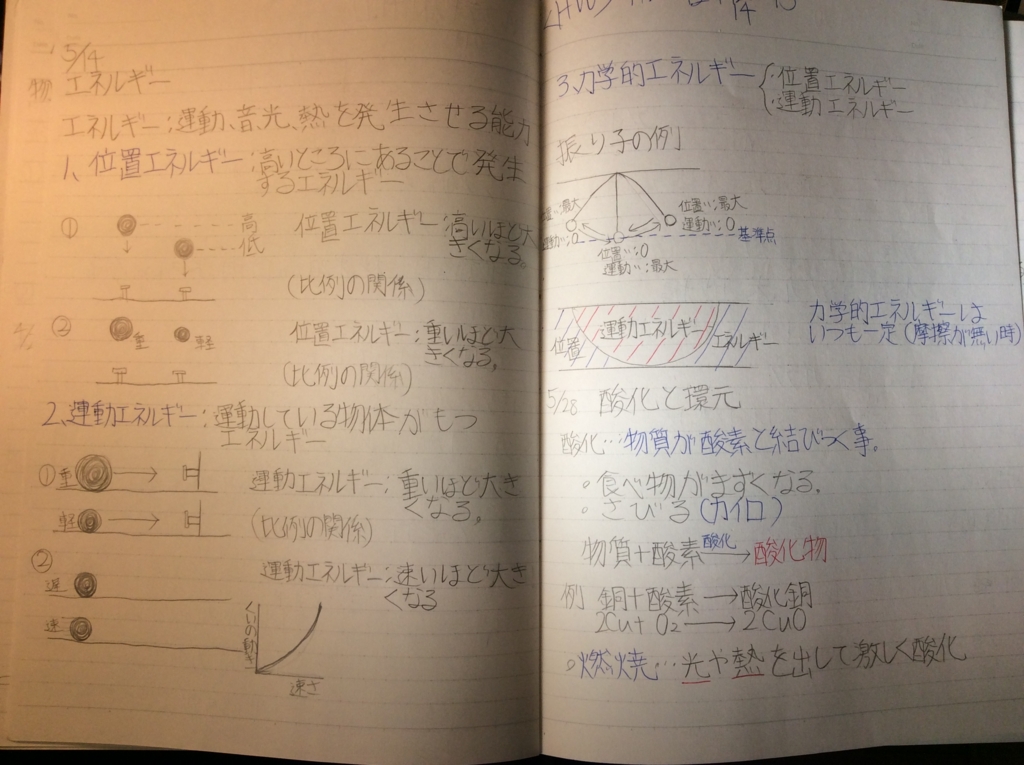 5/14
物 エネルギー
エネルギー:運動、音、光、熱を発生させる能力
1、位置エネルギー:高いところにあることで発生
するエネルギー
① 高
低
位置エネルギー:高いほど大
きくなる。
(比例の関係)
② 重 軽
位置エネルギー:重いほど大
きくなる。
(比例の関係)
2、運動エネルギー:運動している物体がもつ
エネルギー
① 重
軽
運動エネルギー:重いほど大き
くなる。
(比例の関係)
②
遅
速
運動エネルギー:速いほど大き
くなる
くいの動き
速さ
14
3、力学的エネルギー
・位置エネルギー
・運動エネルギー
振り子の例
最大
運動〃:0
位置〃:最大
運動〃:0
基準点
位置〃:0
運動〃:最大
位置 運動エネルギー エネルギー
力学的エネルギーは
いつも一定(摩擦が無い時)
5/28 酸化と環元
酸化…物質が酸素と結びつく事。
○食べ物がまずくなる。
○さびる(カイロ)
物質+酸素 酸化→ 酸化物
例 銅+酸素→酸化銅
2Cu+O₂→2CuO
○燃焼…光や熱を出して激しく酸化